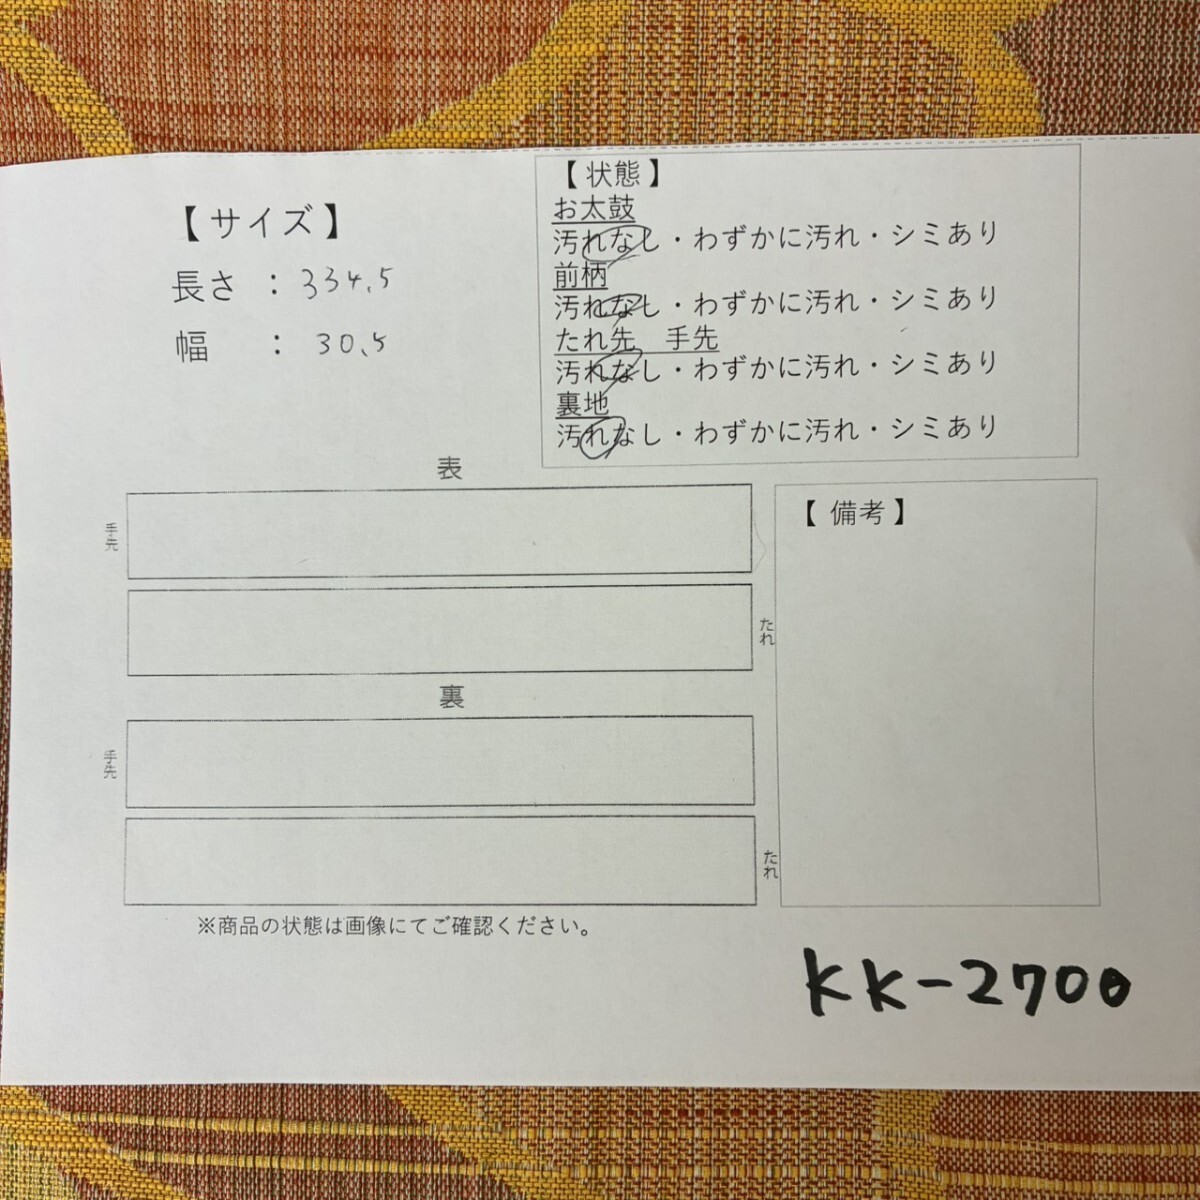 【サイズ】
長さ ： 334.5
幅 ： 30.5
【状態】
お太鼓
汚れなし・わずかに汚れ・シミあり
前柄
汚れなし・わずかに汚れ・シミあり
たれ先 手先
汚れなし・わずかに汚れ・シミあり
裏地
汚れなし・わずかに汚れ・シミあり
表
手先
たれ
裏
手先
たれ
【備考】
※商品の状態は画像にてご確認ください。
KK-2700